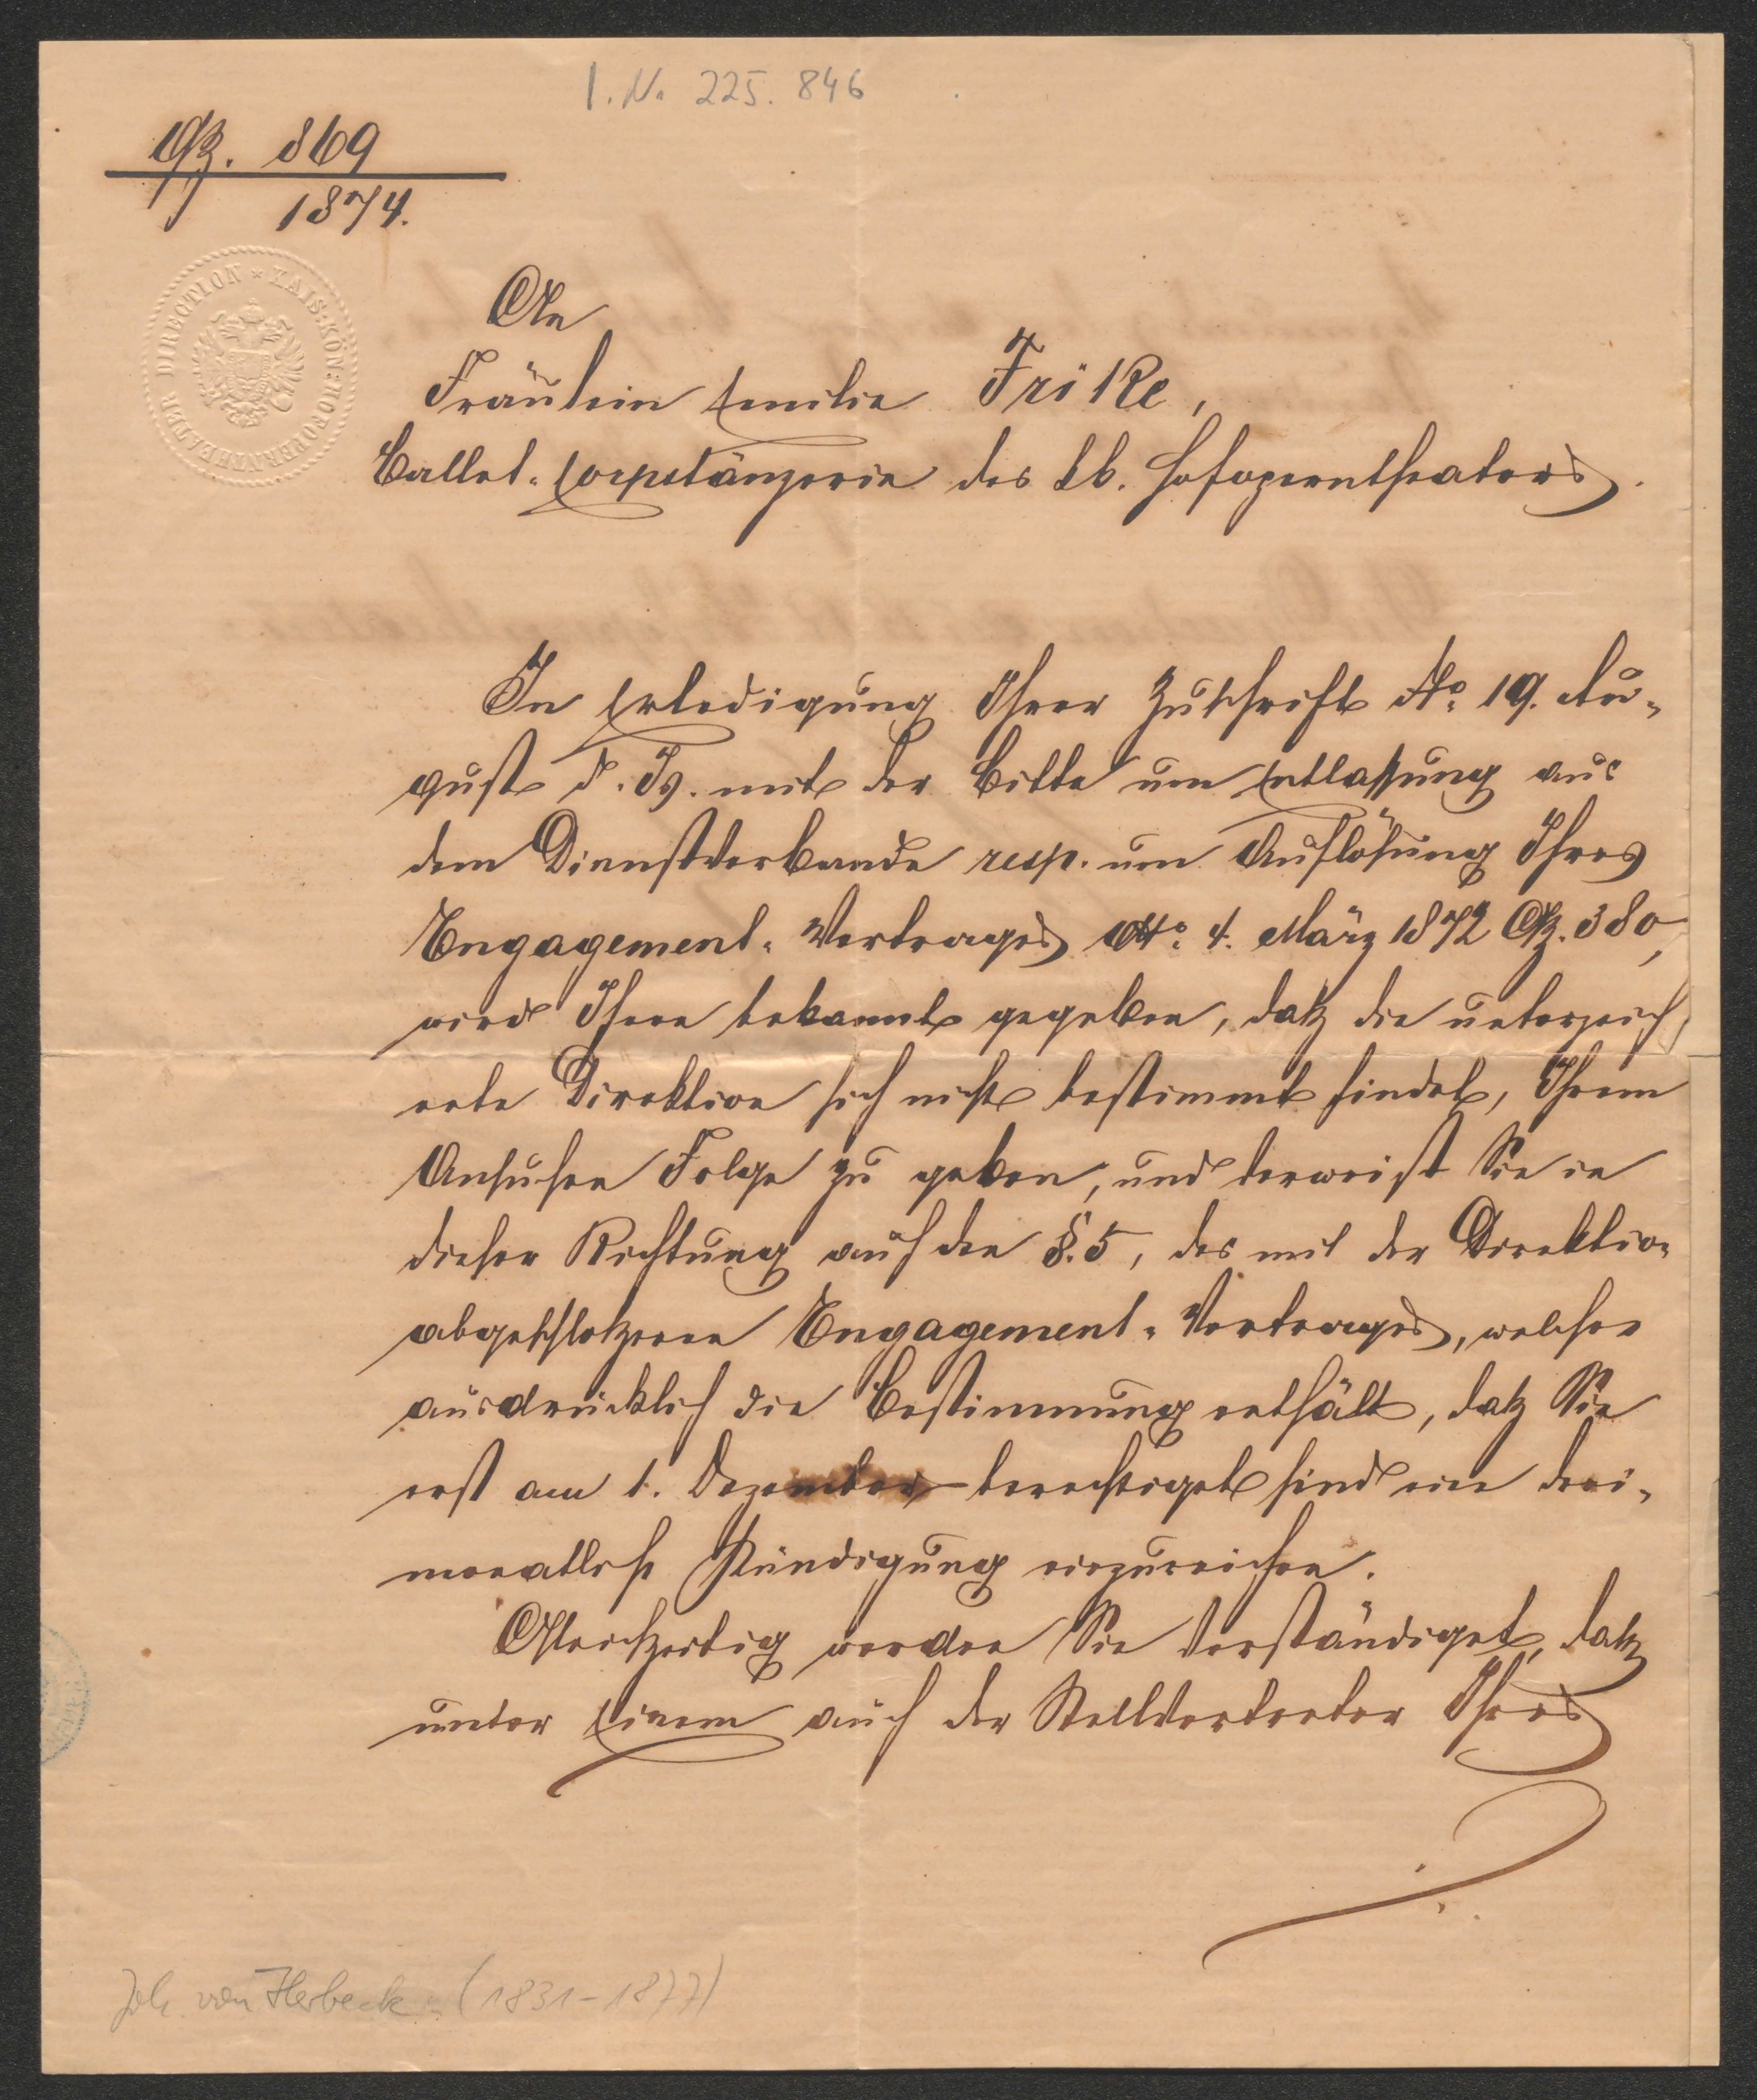 I. N. 225.846
Gz. 869
1874.
KAIS: KÖN: HOFOPERNTHEATER DIRECTION *
An
Fräulein Emilie Frike,
Ballet-Corpstänzerin des kk. Hofoperntheaters.
In Erledigung Ihrer Zuschrift dto. 19. Au-
gust d. Js. mit der Bitte um Entlassung aus
dem Dienstverbande resp. um Auflösung Ihres
Engagement-Vertrages dto. 4. März 1872 Gz. 380,
wird Ihnen bekannt gegeben, daß die unterzeich
nete Direktion sich nicht bestimmt findet, Ihrem
Ansuchen Folge zu geben, und verweist Sie in
dieser Richtung auf den §. 5, des mit der Direktion
abgeschloßenen Engagement-Vertrages, welcher
ausdrücklich die Bestimmung enthält, daß Sie
erst am 1. Dezember berechtiget sind eine drei-
monatliche Kündigung einzureichen.
Gleichzeitig werden Sie verständiget, daß
unter Einem auch der Stellvertreter Ihres
Joh. von Herbeck (1831-1877)